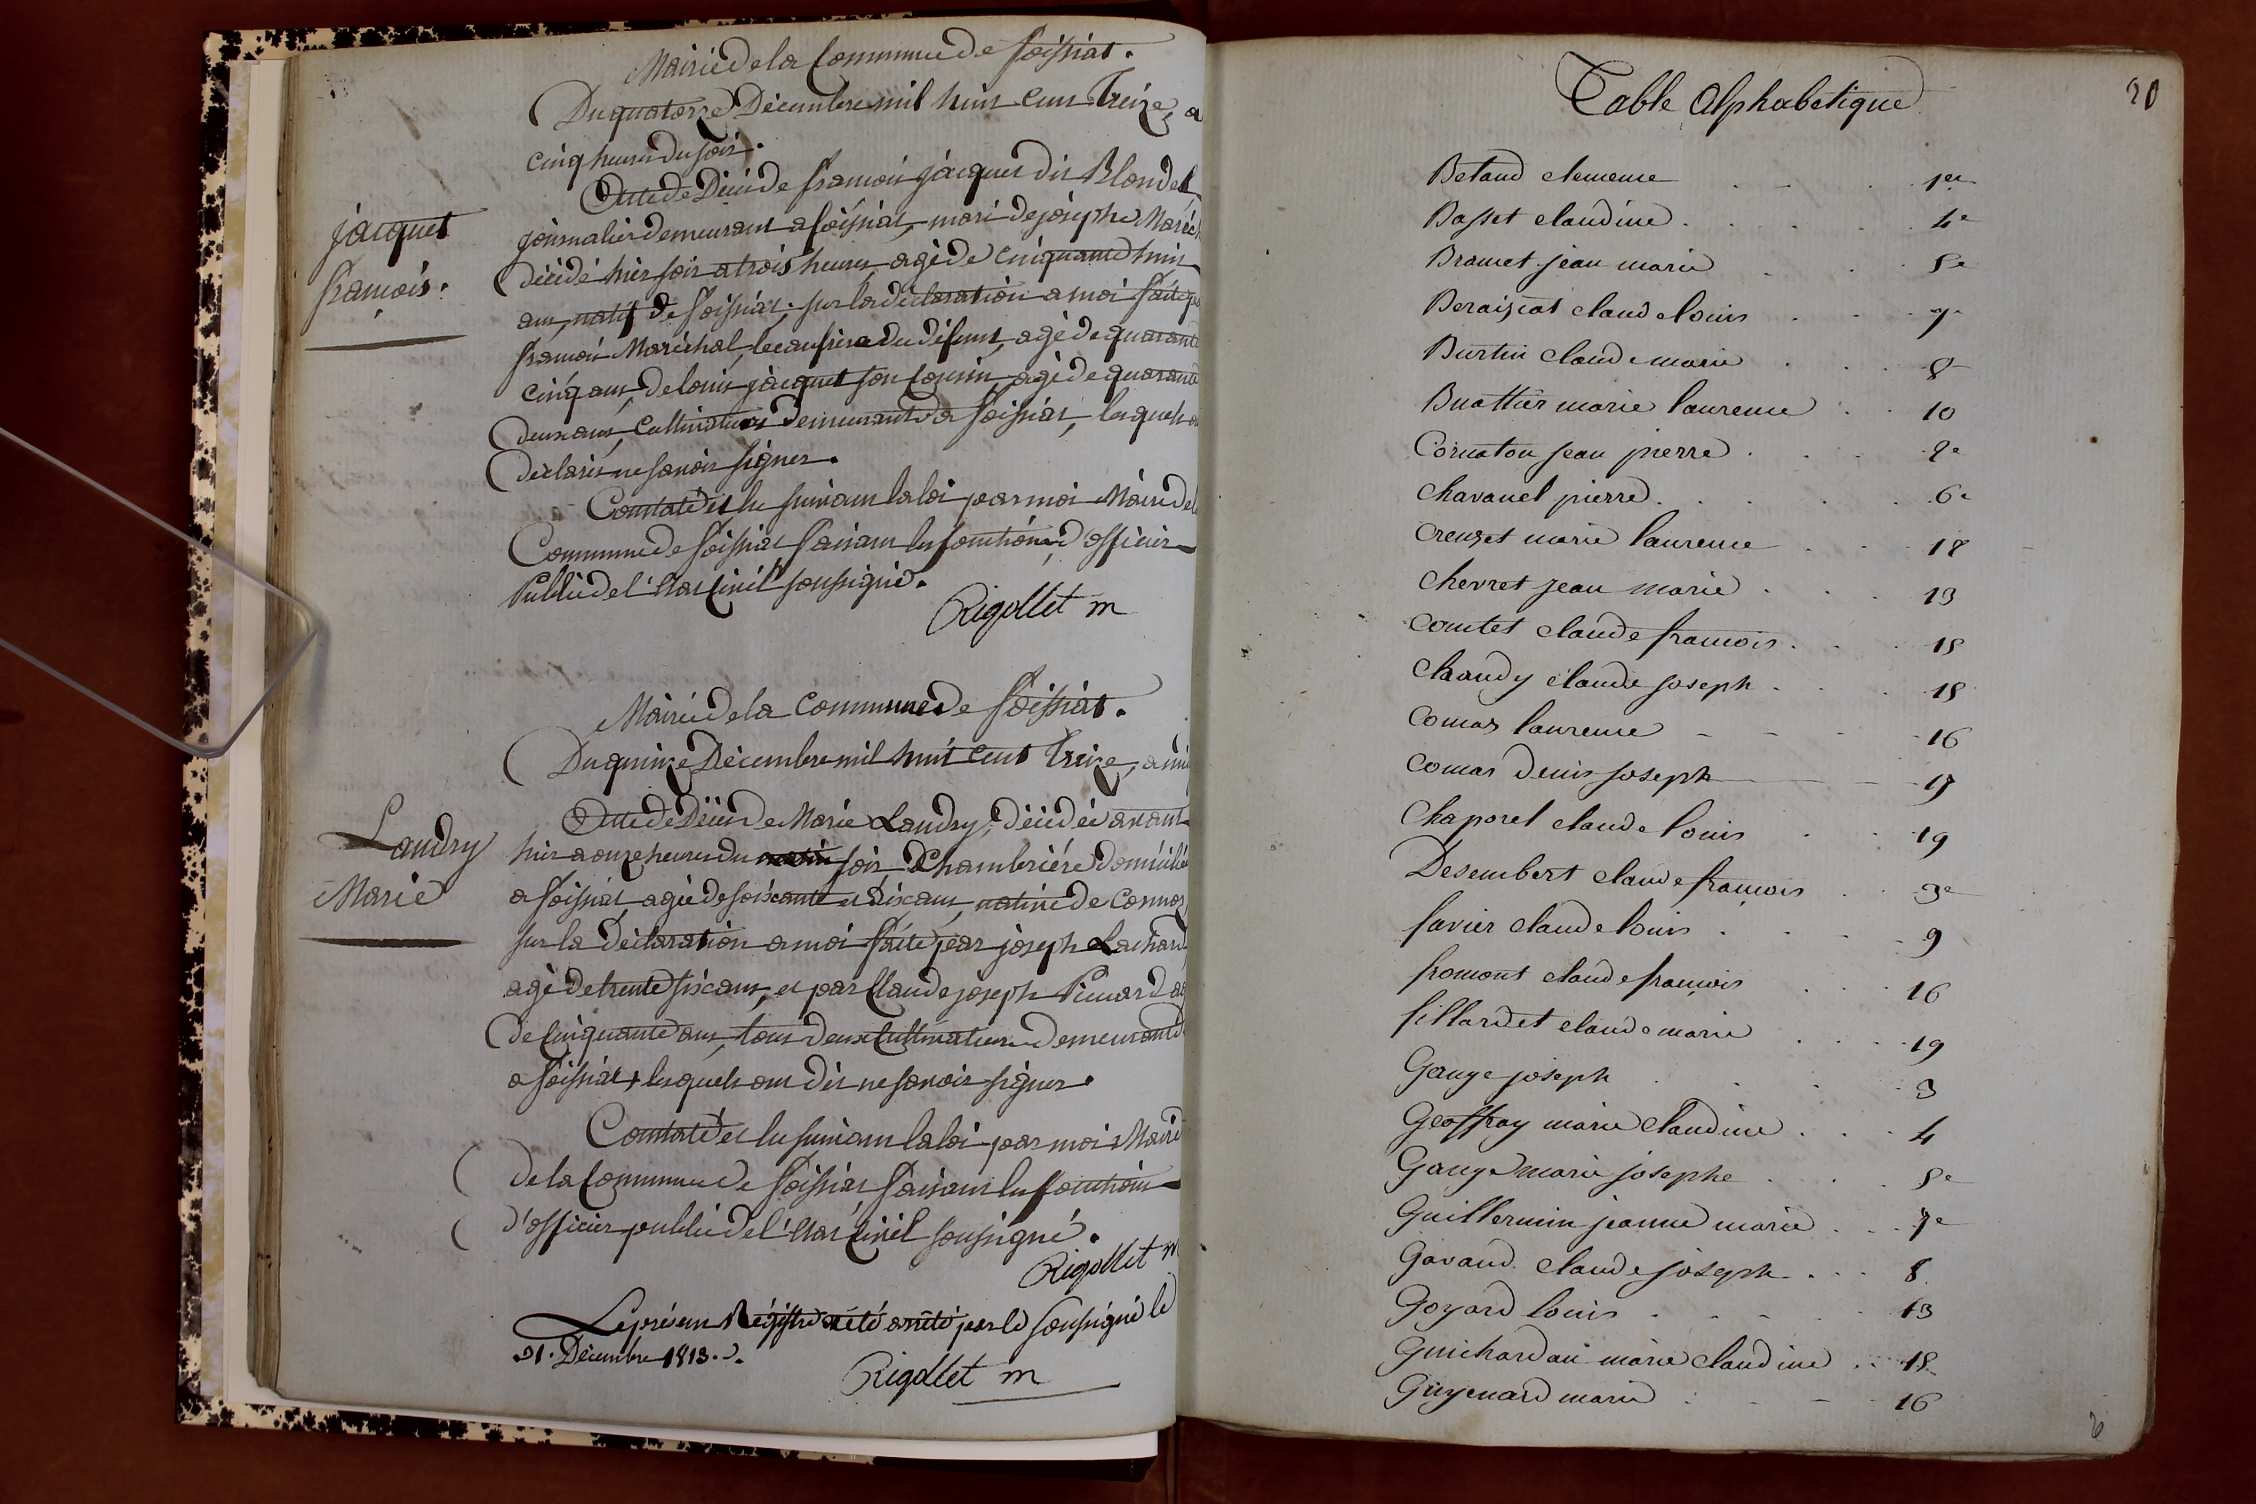 Mairie de la Commune de Foissiat.
Du quatorze Décembre mil huit cent Treize, a
cinq heures du soir.
Acte de Décès de françois jacquet dit Blondel
jacquet
françois.
journalier demeurant a foissiat, mari de josephe Maréch
décédé hier soir a trois heures agé de cinquante huit
ans, natif de foissiat; sur la déclaration a moi faite par
françois Maréchal, beaufrère du défunt, agé de quarante
cinq ans, de louis jacquet son cousin, agé de quarante
deux ans, Cultivateurs demeurant a foissiat, lesquels on
déclarés ne savoir signer.
Constaté et lu suivant la loi par moi Maire de la
Commune de foissiat faisant les fonctions d'officier
Public de l'Etat Civil soussigné.
Rigollet m
Mairie de la Commune de Foissiat.
Du quinze Décembre mil huit cent Treize, a midi
Acte de Décès de Marie Landry, décédée avant
Landry
Marie
hier a onze heures du matin soir Chambrière domiciliée
a foissiat, agée de soixante et dix ans, native de Cormoz
sur la déclaration a moi faite par joseph Lachard
agé de trente six ans, et par Claude joseph Picuard agé
de Cinquante ans, tous deux Cultivateurs demeurants
a foissiat lesquels ont dit ne savoir signer.
Constaté et lu suivant la loi par moi Maire
de la Commune de foissiat faisant les fonctions
d'officier public de l'Etat Civil soussigné.
Rigollet m
Le présent Régistre a été arrêté par le soussigné le
31. Décembre 1813.
Rigollet m
Table Alphabetique
20
Betaud clemence 1er
Basset claudine 4e
Bramet jean marie 5e
Beraiziat claude louis 7e
Burtin claude marie 8
Buattier marie laurence 10
Cornaton jean pierre 2e
Chavanel pierre 6e
Creuzet marie laurence 12
Chevret jean marie 13
Comtet claude françois 15
Chaudy claude joseph 15
Comas laurence 16
Comas denis joseph 17
Chaporel claude louis 19
Desembert claude françois 3e
favier claude louis 9
fromont claude françois 16
fillardet claude marie 19
Gauge joseph 3
Geoffray marie claudine 4
Gauge marie josephe 5e
Guillermin jeanne marie 7e
Gavand claude joseph 8
Goyard louis 13
Guichardan marie claudine 15
Guyenard marie 16